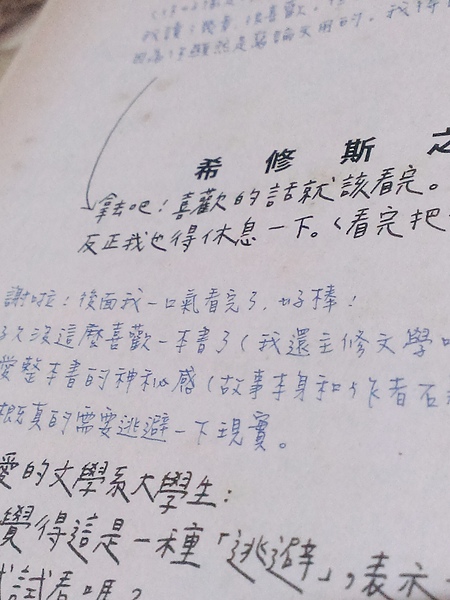 我讀了幾章，很喜歡。
希修斯之
拿去吧！喜歡的話就該看完。
反正我也得休息一下。（看完把
謝啦！後面我一口氣看完了，好棒！
好久沒這麼喜歡一本書了（我還主修文學
愛整本書的神祕感（故事本身和作者石
概真的需要逃避一下現實。
愛的文學系大學生：
覺得這是一種「逃避」，表示
試試看嗎？